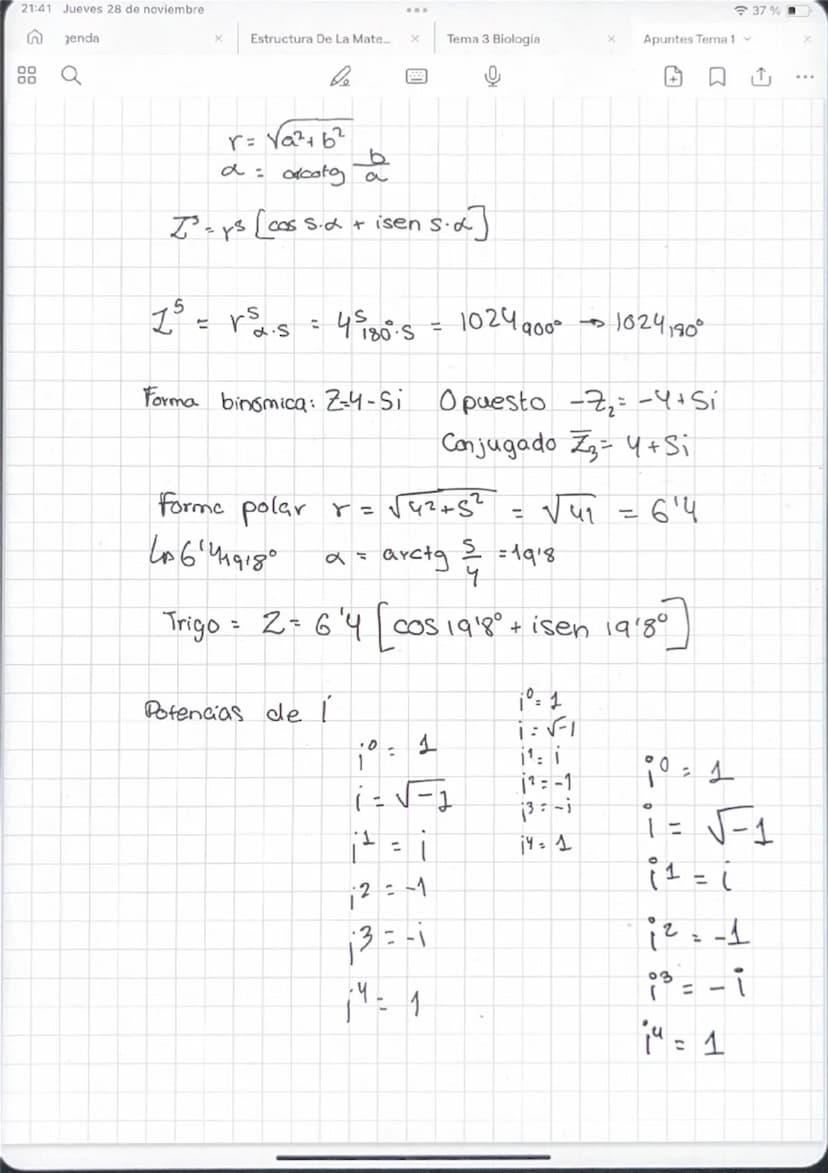 21:41 Jueves 28 de noviembre
37 %
genda × Estructura De La Mate... × Tema 3 Biología × Apuntes Tema 1 ×
r = √a²+b²
α = arcotg b/a
Z⁵ = r⁵ [cos 5·α + i sen 5·α]
Z⁵ = r⁵ α·5 = 4⁵ 180°·5 = 1024 900° → 1024 180°
Forma binómica: Z=4-5i Opuesto -Z₂ = -4+5i
Conjugado Z̅₃ = 4+5i
Forma polar r = √4²+5² = √41 = 6'4
↳ 6'4 19'8° α = arctg 5/4 = 19'8
Trigo = Z = 6'4 [cos 19'8° + i sen 19'8°]
Potencias de i
i⁰ = 1
i = √-1
i¹ = i
i² = -1
i³ = -i
i⁴ = 1
i⁰ = 1
i = √-1
i¹ = i
i² = -1
i³ = -i
i⁴ = 1
i⁰ = 1
i = √-1
i¹ = i
i² = -1
i³ = -i
i⁴ = 1